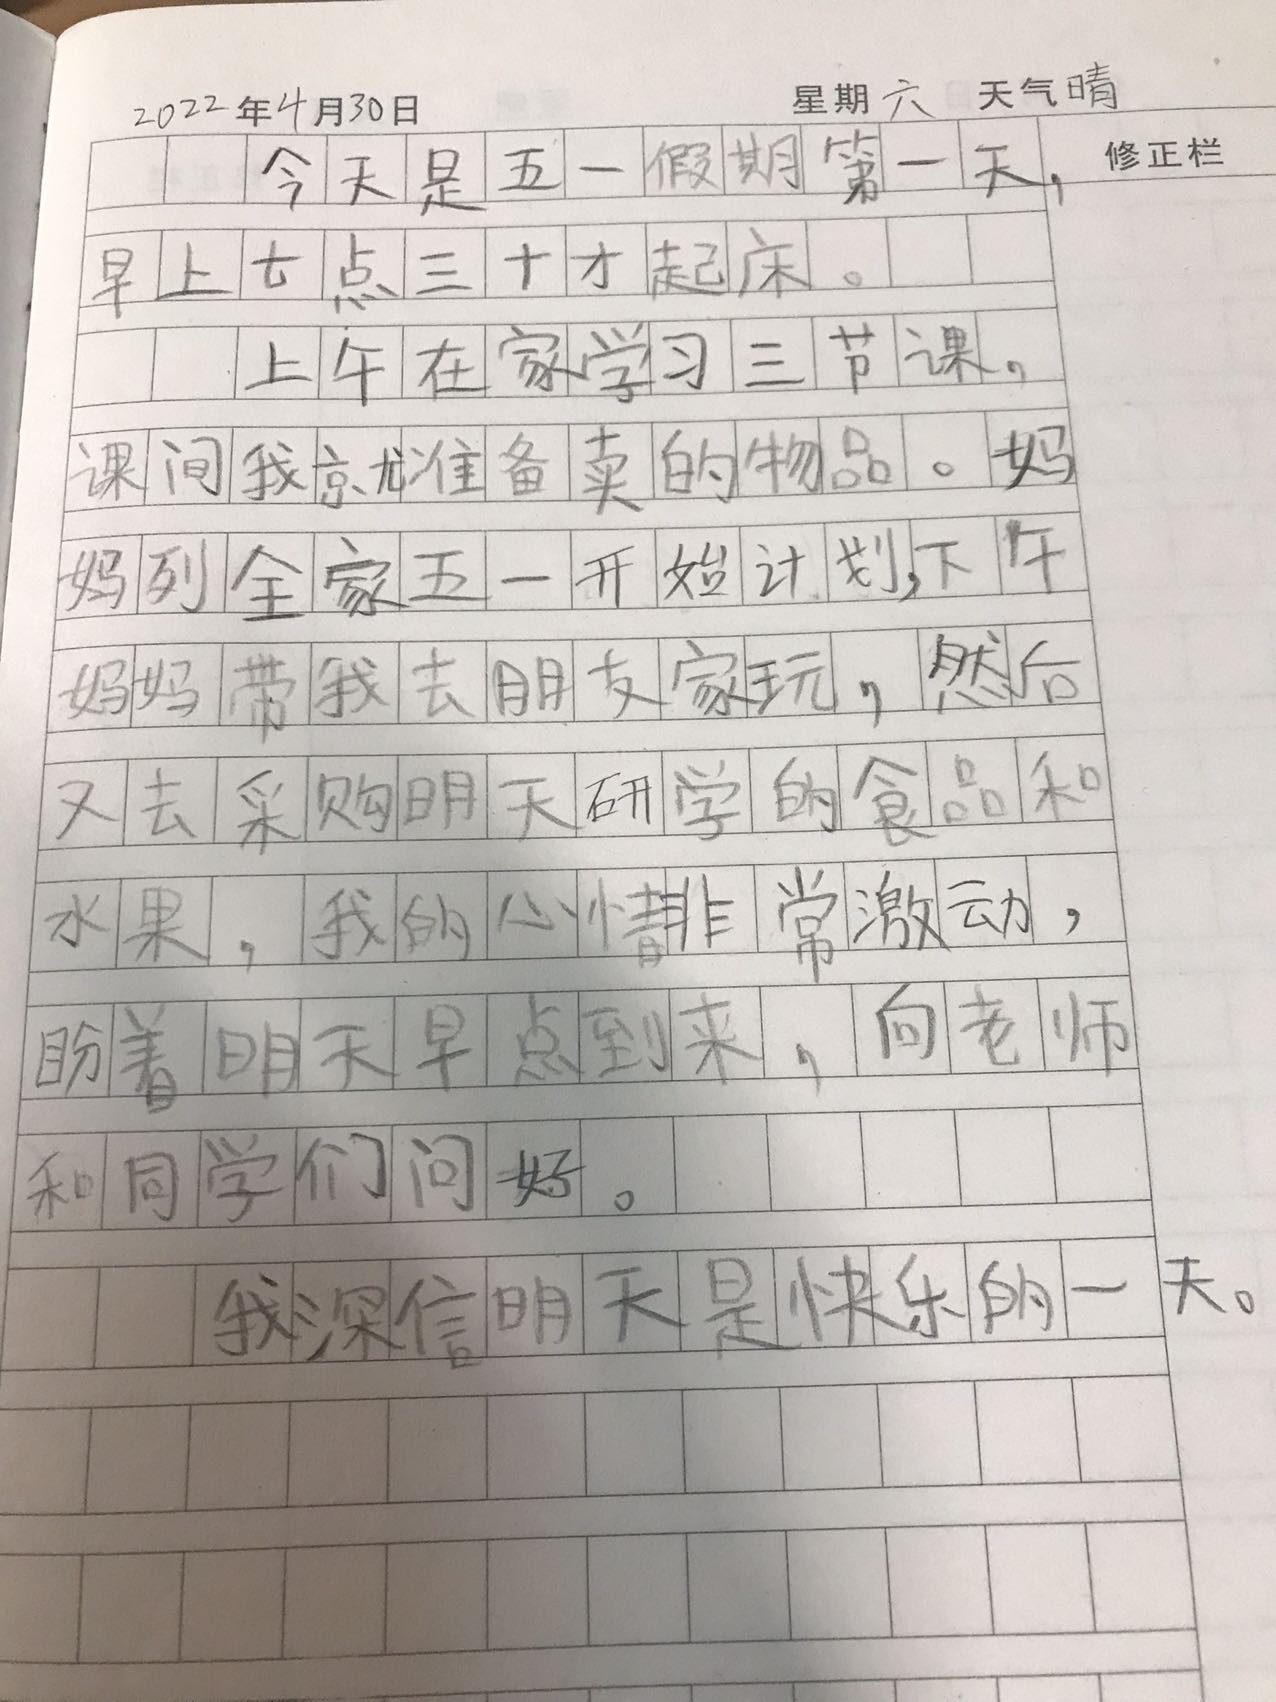 2022年4月30日 星期六 天气晴
修正栏
今天是五一假期第一天，
早上七点三十才起床。
上午在家学习三节课，
课间我就准备卖的物品。妈
妈列全家五一开始计划，下午
妈妈带我去朋友家玩，然后
又去采购明天研学的食品和
水果，我的心情非常激动，
盼着明天早点到来，向老师
和同学们问好。
我深信明天是快乐的一天。